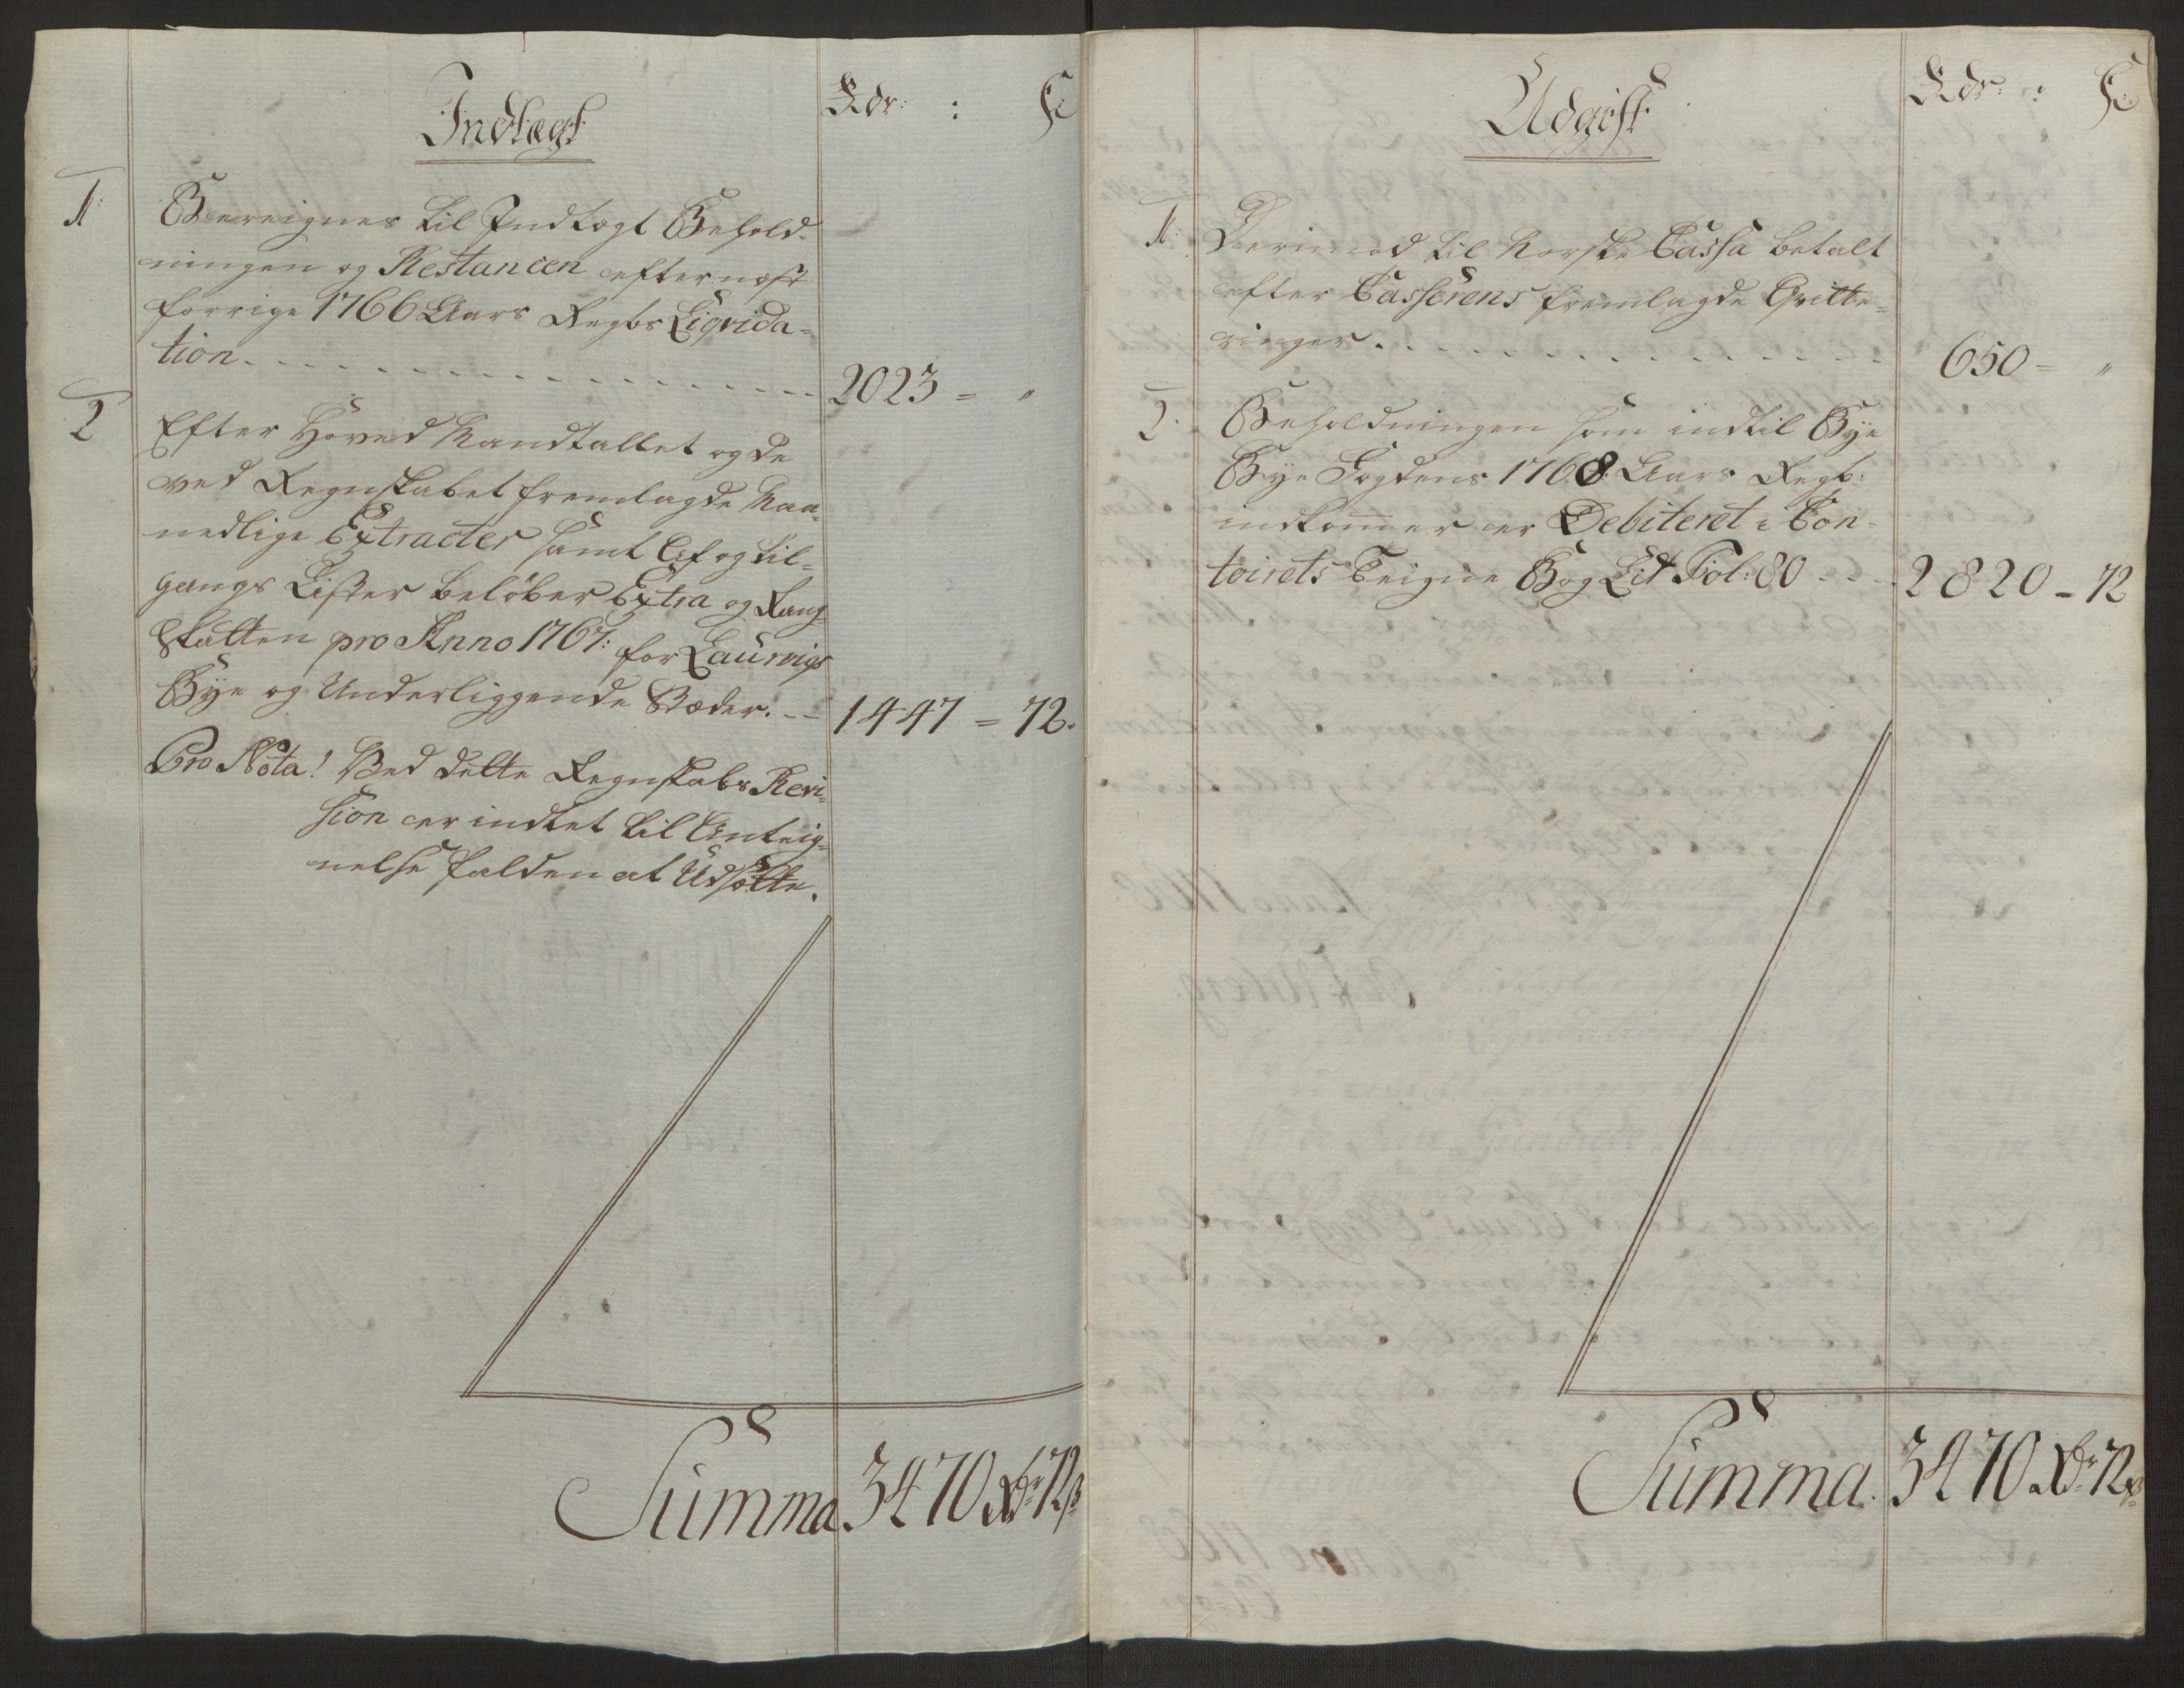 Indtægt
Rdr: : ß
1. Bereignes til Indtægt Behold-
ningen og Restancen efter næst
forrige 1766 Aars Regbs Liqvida=
tion. - - - 2023 = "
2 Efter Hoved Mandtallet og de
ved Regnskabet fremlagde Maa-
nedlige Extracter samt Af og til=
gangs Lister beløber Extra og Rang
Skatten pro Anno 1767: for Laurvigs
Bye og Underliggende Stæder. - - 1447 = 72.
Pro Nota! Ved dette Regnskabs Revi=
sion er indtet til Anteig=
nelse falden at Udsætte.
Summa 3470 Rdr 72 ß
Udgift
Rdr: : ß
1. Derimod til Norske Cassa betalt
efter Casserens fremlagde Qvitte=
ringer. - - - 650 = "
2. Beholdningen som indtil Bye
Bye Fogdens 1768. Aars Regb:
indkommer er Debiteret i Con=
toirets Teigne Bog Lit Fol: 80 - - - 2820 - 72
Summa. 3470 Rdr 72 ß